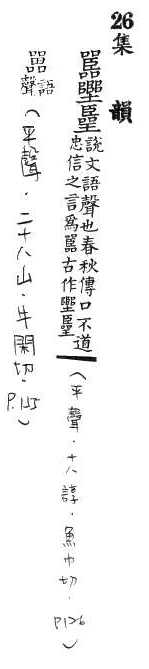 26 集 韻
嚚
說文語聲也春秋傳口不道
忠信之言爲嚚古作
（平聲．十八諄．魚巾切．P126）
嚚 語聲（平聲．二十八山．牛閑切．）